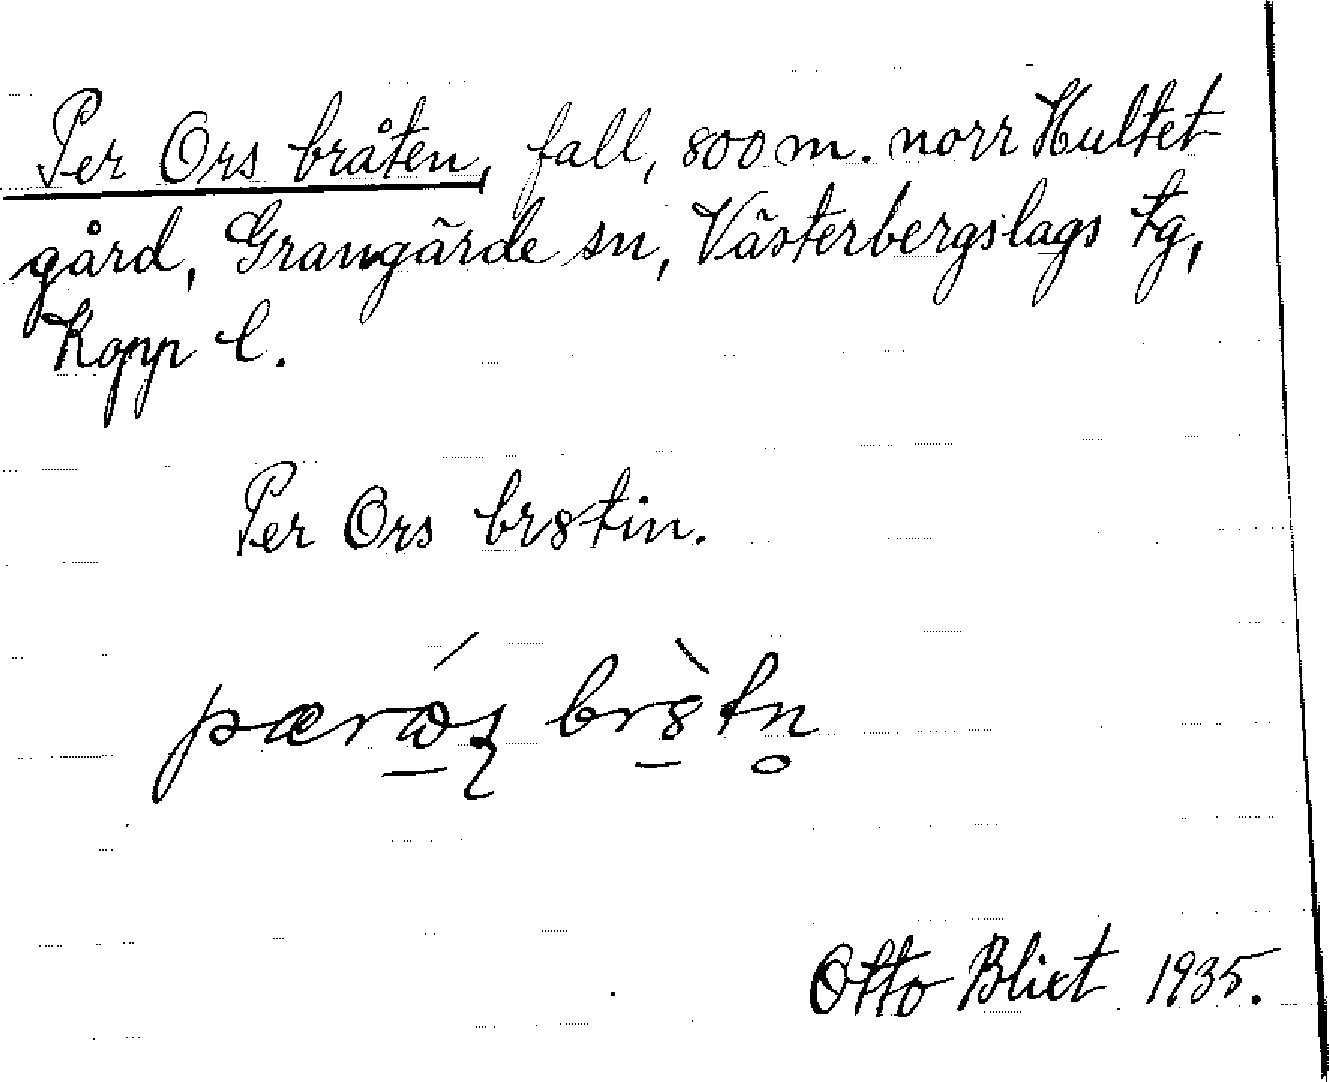 Per Ors bråten, fall, 800 m. norr Hultet
gård, Grangärde sn, Västerbergslags tg,
Kopp l.
Per Ors br8tin.
Otto Blixt 1935.